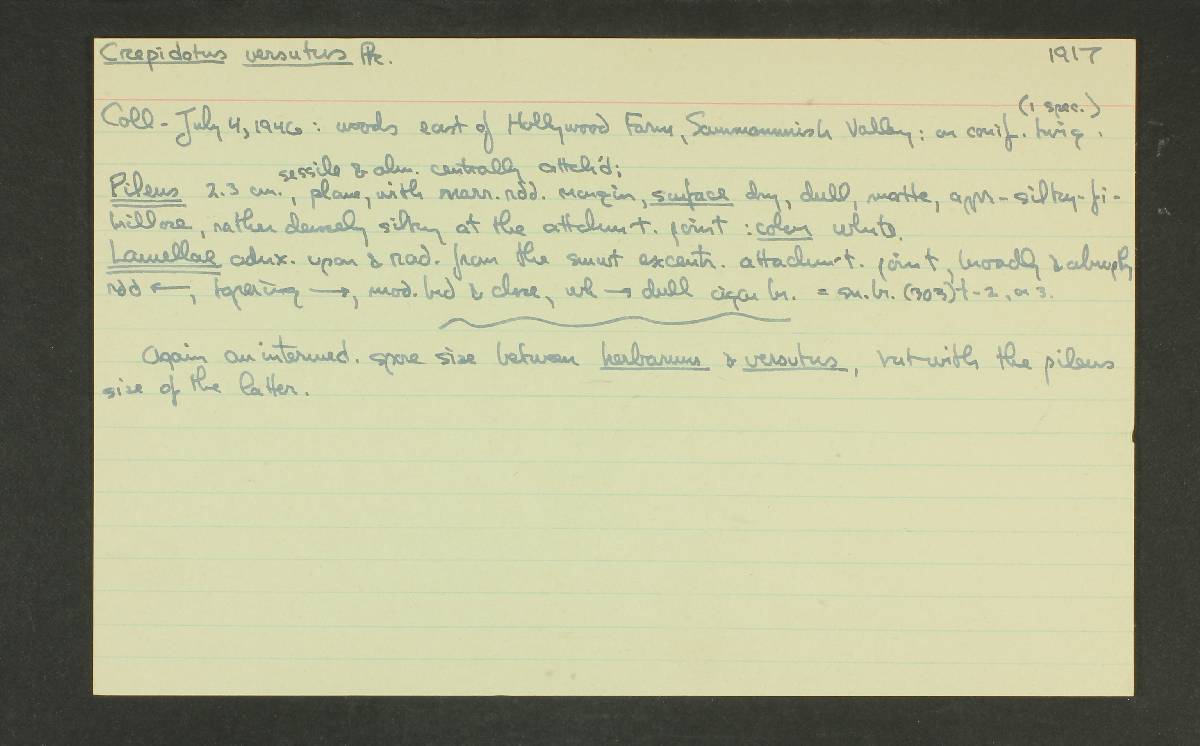 Crepidotus versutus Pk. 1917
(1 spec.)
Coll - July 4, 1946 : woods east of Hollywood Farm, Sammammish Valley : on conif. twig.
sessile & alm. centrally attch'd;
Pileus 2.3 cm., plane, with narr. rdd. margin, surface dry, dull, matte, appr-silky-fi-
brillose, rather densely silky at the attchm't. point : color white.
Lamellae adnx. upon & rad. from the smwt excentr. attachm't. point, broadly & abruptly
rdd ←, tapering →, mod. brd & close, wh → dull cigar br. = sn. br. (303) + - 2, or 3.
Again an intermed. spore size between herbarum & versutus, but with the pileus
size of the latter.